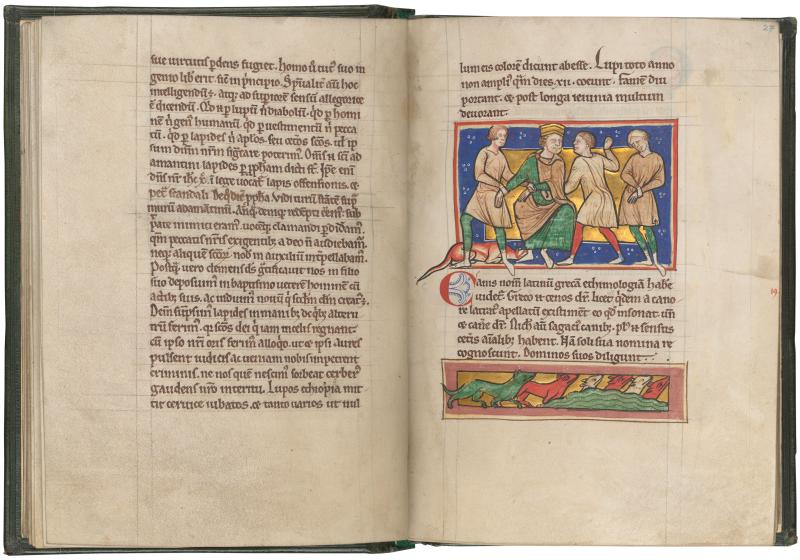 sue uirtutis pdens fugiet. Homo u̾ tut᾽ suo in
genio lib̾ erit. sic̄ in p̾ncipio. Sp̄ualit̾ aūt hoc
intelligendū ÷. atq; ad supiorē sensū allegorice
ē dicendū. Qd n̄ p lupū n̄ diabolū. qd p homi
nē n̄ gen᾽ humanū. qd p uestimentū n̄ pecca
tū. qd p lapides n̄ aplōs. seu
sum dn̄m
amantini lapides p pph̄am dicti st̄. Ipse eni
dn̄s nr̄ ihc̄ xp̄
pet᾽ scandali
murū adamantinū. Antq̄ deniq; redempti eēm᾽. sub
pate inimici eram᾽. uocēq; clamandi pdidam᾽.
qm̄ peccatis nr̄is exigentib; a deo n̄ audiebam᾽.
neq; aliquē scōr̄. nob̄ in auxiliū int̾pellabam᾽.
Postq̄ uero clemens ds̄ gr̄ificauit nos in filio
suo deposuim᾽ in baptismo ueterē hominem cū
actib; suis. ac induim᾽ nouū q̄ scd̄m dm̄ creat᾽ ÷.
Dein sūpsim᾽ lapides in manib; deq;
trū ferim᾽. q̄ scōs dei q̄ iam in celis regnant
cū ipso nr̄i oris ferim᾽ alloq̄o. ut ⁊ ipsi aures
pulsent iudicis ac ueniam nobis inpetrent
criminis. ne nos quē nescim᾽ sorbeat cerber᾽
gaudens nr̄o interitu. Lupos ethiopia mit
tit ceruice iubatos. ⁊ tanto uarios ut nul
27
lum eis colorē dicunt abesse. Lupi toto anno
non ampli᾽ qm̄ dies .xii. coeunt. Famē diu
portant. ⁊ post longa ieiunia multum
deuorant.
Canis nom̄ latinū grecā ethimologiā habē
uidet᾽. Greco n̄ cenos dr̄. licet q̄dem a cano
re latrat᾽ apellatū existiment eo qd insonat. un̄
⁊ cane dr̄. Nich̄ aūt sagaci᾽ canib;. pl᾽ n̄ sensus
cet̾is aīalib; habent. Nā soli sua nomina re
cognoscunt. Dominos suos diligunt.
19.